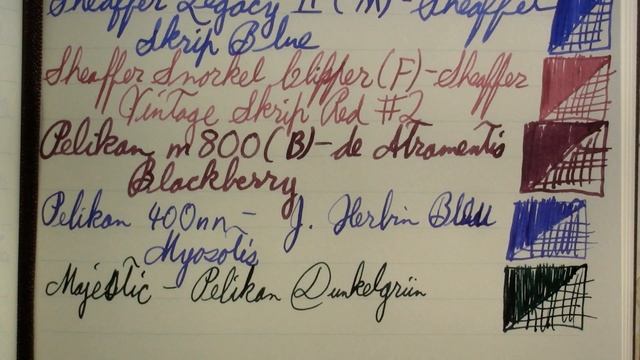 Sheaffer Legacy II (M) - Sheaffer
Skrip Blue
Sheaffer Snorkel Clipper (F) - Sheaffer
Vintage Skrip Red #2
Pelikan m800 (B) - de Atramentis
Blackberry
Pelikan 400nn - J. Herbin Bleu
Myosotis
Majestic - Pelikan Dunkelgrün